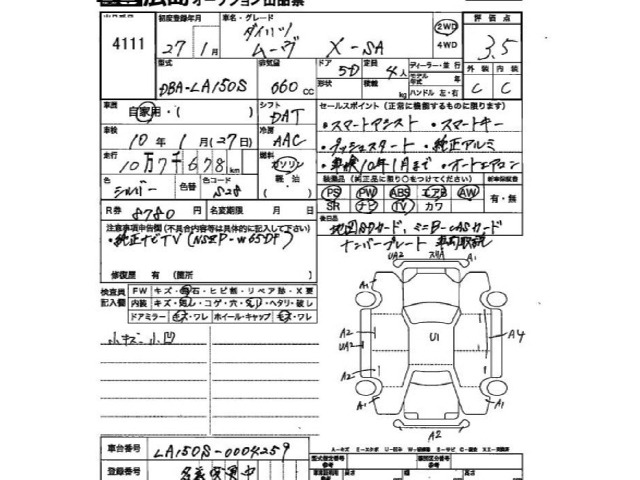 オークション出品票
初度登録年月 車名・グレード 評価点
4111 27年1月 ダイハツ ムーヴ X-SA 2WD 4WD 3.5
型式 排気量 ドア 定員 ディーラー・並行 外装 内装
DBA-LA150S 660cc 形状 5D 4人 モデル年式 年
積載 kg ハンドル 左・右 C C
車歴 自家用・( ) シフト DAT セールスポイント(正常に機能するものに限ります)
・スマートアシスト ・スマートキー
車検 10年1月(27日) 冷房 AAC ・プッシュスタート ・純正アルミ
走行 10万7千678km 燃料 ガソリン 軽油 ・車検10年1月まで ・オートエアコン
装備品(純正品に限り〇をつけてください)
色 シルバー 色替 色コード S28 PS PW ABS エアB AW 有・無
SR ナビ TV カワ
R券 8780円 名変期限 月 日 後日品
注意事項申告欄(不具合内容等は具体的に記入して下さい) 地図SDカード、ミニB-CASカード
・純正ナビTV(NSZP-W65DF) ナンバープレート 車両取説
修復歴 有 (箇所 )
検査員記入欄 FW キズ・飛石・ヒビ割・リペア跡・X要
内装 キズ・汚し・コゲ・穴・ヘタリ・破し
ドアミラー キズ・ワレ ホイール・キャップ キズ・ワレ
小キズ 小凹
UA2 スリA
A1 A1
A2 U1 A4
UA2
A2
A1 A1
A2
車台番号 LA150S-0004259
登録番号